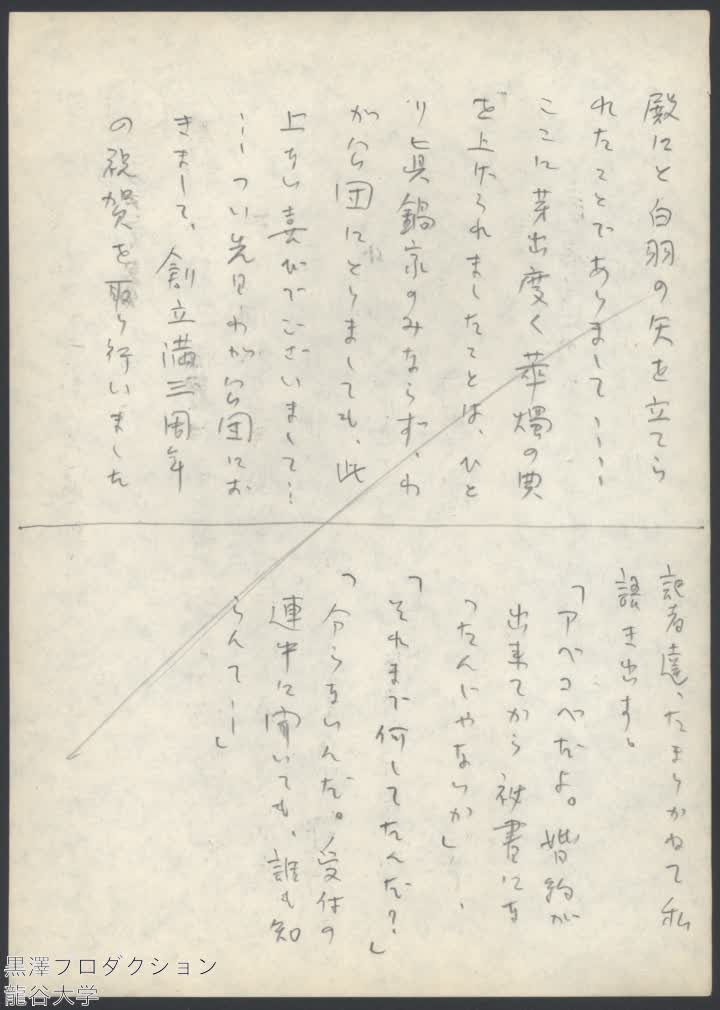 殿にと白羽の矢を立てら
れたことでありまして……
ここに芽出度く華燭の典
を上げられましたことは、ひと
り真鍋家のみならず、わ
が公団にとりましても、此
上ない喜びでございまして…
…つい先日、わが公団にお
きまして、創立満三周年
の祝賀を取り行いました
記者達、たまりかねて私
語き出す。
「アベコベだよ。婚約が
出来てから秘書にな
ったんじゃないか」
「それまで何してたんだ？」
「分らないんだ。受付の
連中に聞いても、誰も知
らんて…」
黒澤プロダクション
龍谷大学